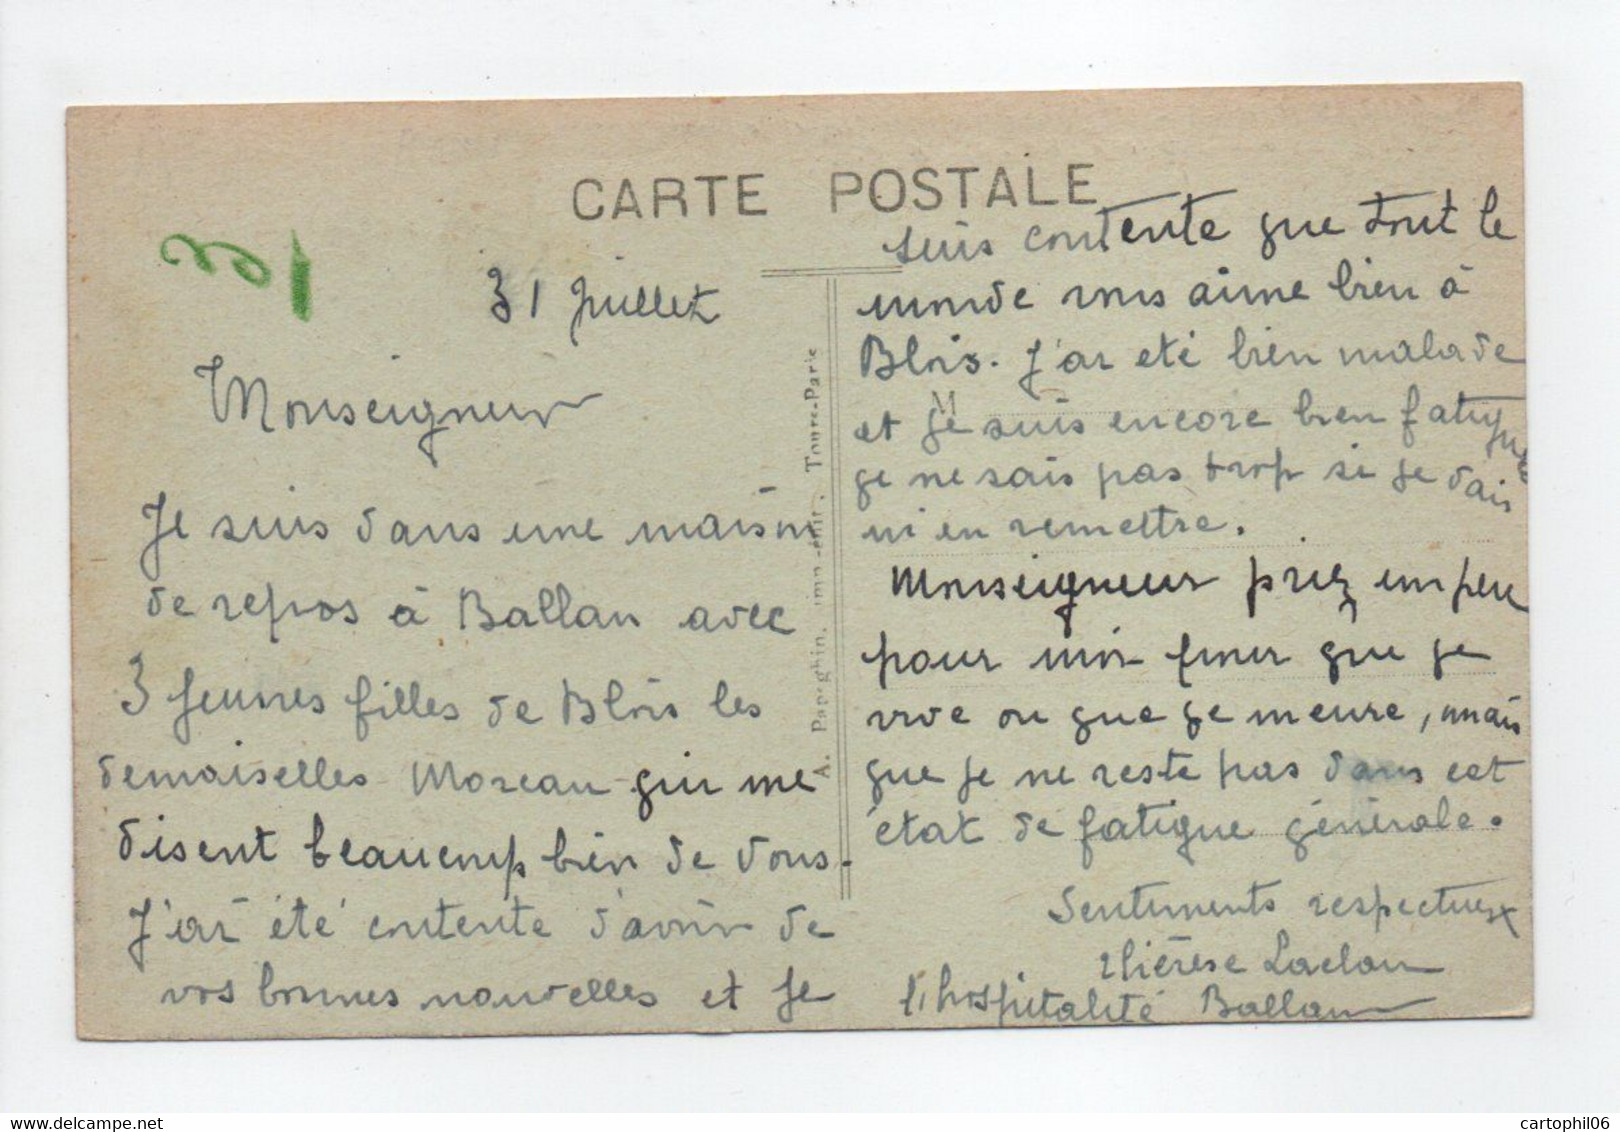 CARTE POSTALE
31 Juillet
Monseigneur
Je suis dans une maison
de repos à Ballan avec
3 jeunes filles de Blois les
demoiselles Moreau qui me
disent beaucoup bien de vous.
J'ai été contente d'avoir de
vos bonnes nouvelles et je
A. Papeghin, imp.-édit., Tours-Paris
suis contente que tout le
monde vous aime bien à
Blois. J'ai eté bien malade
et je suis encore bien fatiguée
je ne sais pas trop si je vais
m'en remettre.
Monseigneur priez un peu
pour moi pour que je
vive ou que je meure, mais
que je ne reste pas dans cet
état de fatigue générale.
Sentiments respectueux
Thérèse
l'hospitalité Ballan
cartophil06